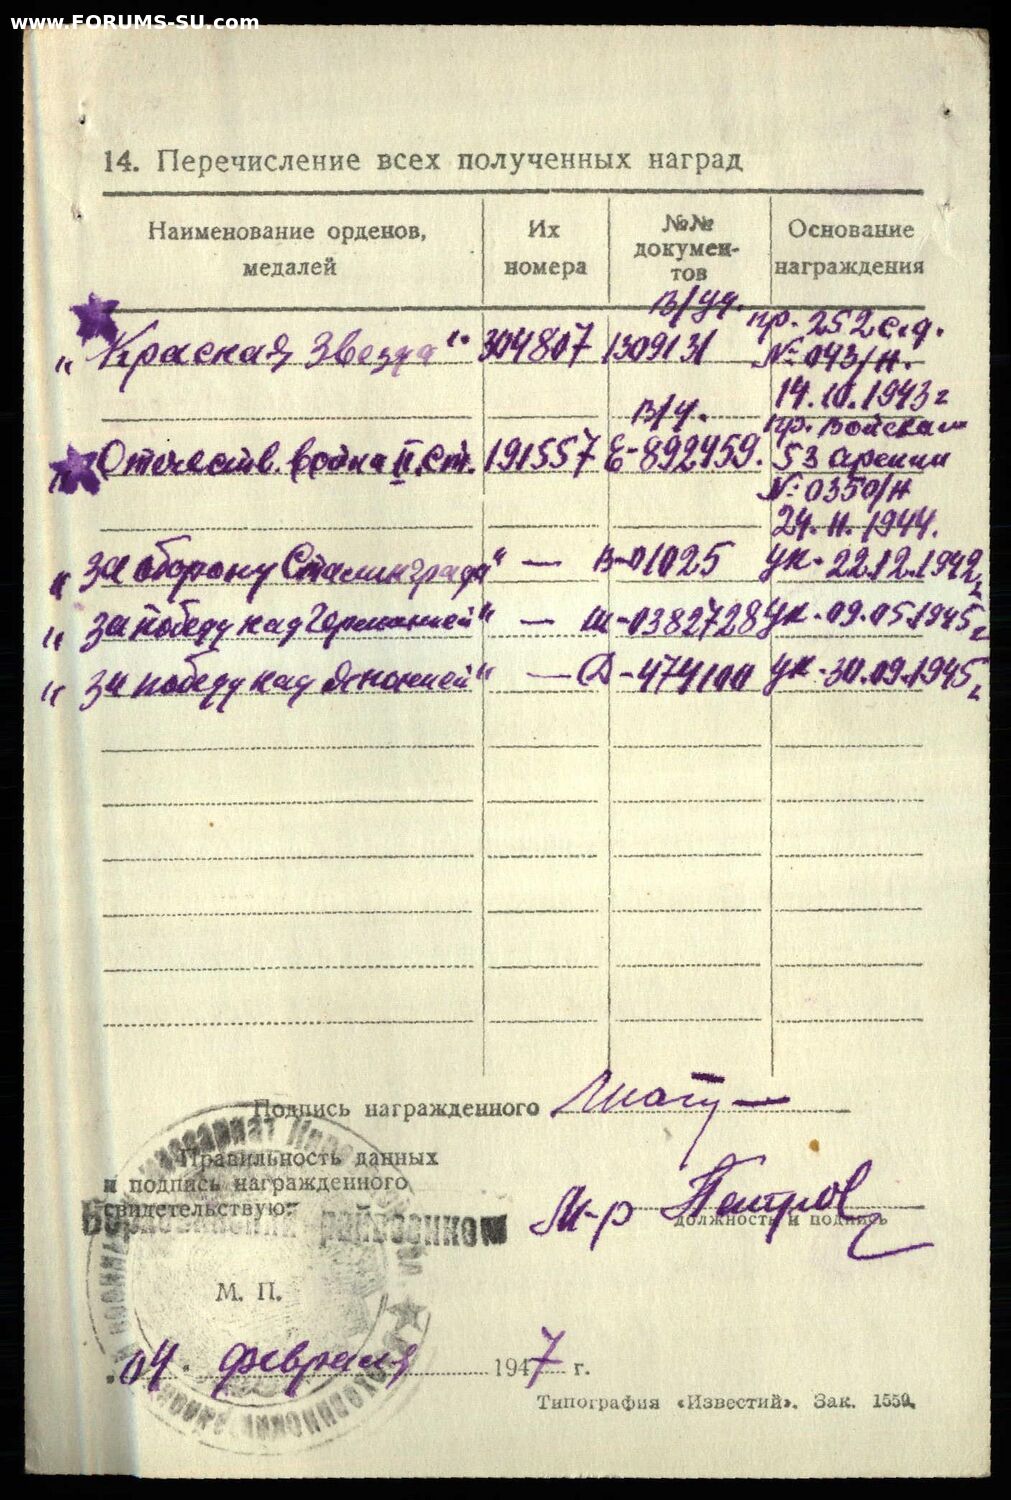 www.FORUMS-SU.com
14. Перечисление всех полученных наград
Наименование орденов, медалей
Их номера
№№ документов
Основание награждения
"Красная Звезда" 304807 в/уд. 1309131 пр. 252 с.д. № 043/н. 14.10.1943 г
Отечеств. война II ст. 191557 в/ч. Е-892459. пр. войскам 53 армии № 0350/н 24.11.1944.
"За оборону Сталинграда" — В-01025 Ук. 22.12.1942 г.
"За победу над Германией" — Ш-0382728 Ук. 09.05.1945 г
"За победу над Японией" — Д-474100 Ук. 30.09.1945 г.
Подпись награжденного
Правильность данных
и подпись награжденного
свидетельствую:
райвоенком
М-р Петров
должность и подпись
М. П.
04. февраля 1947 г.
Типография «Известий». Зак. 1559.